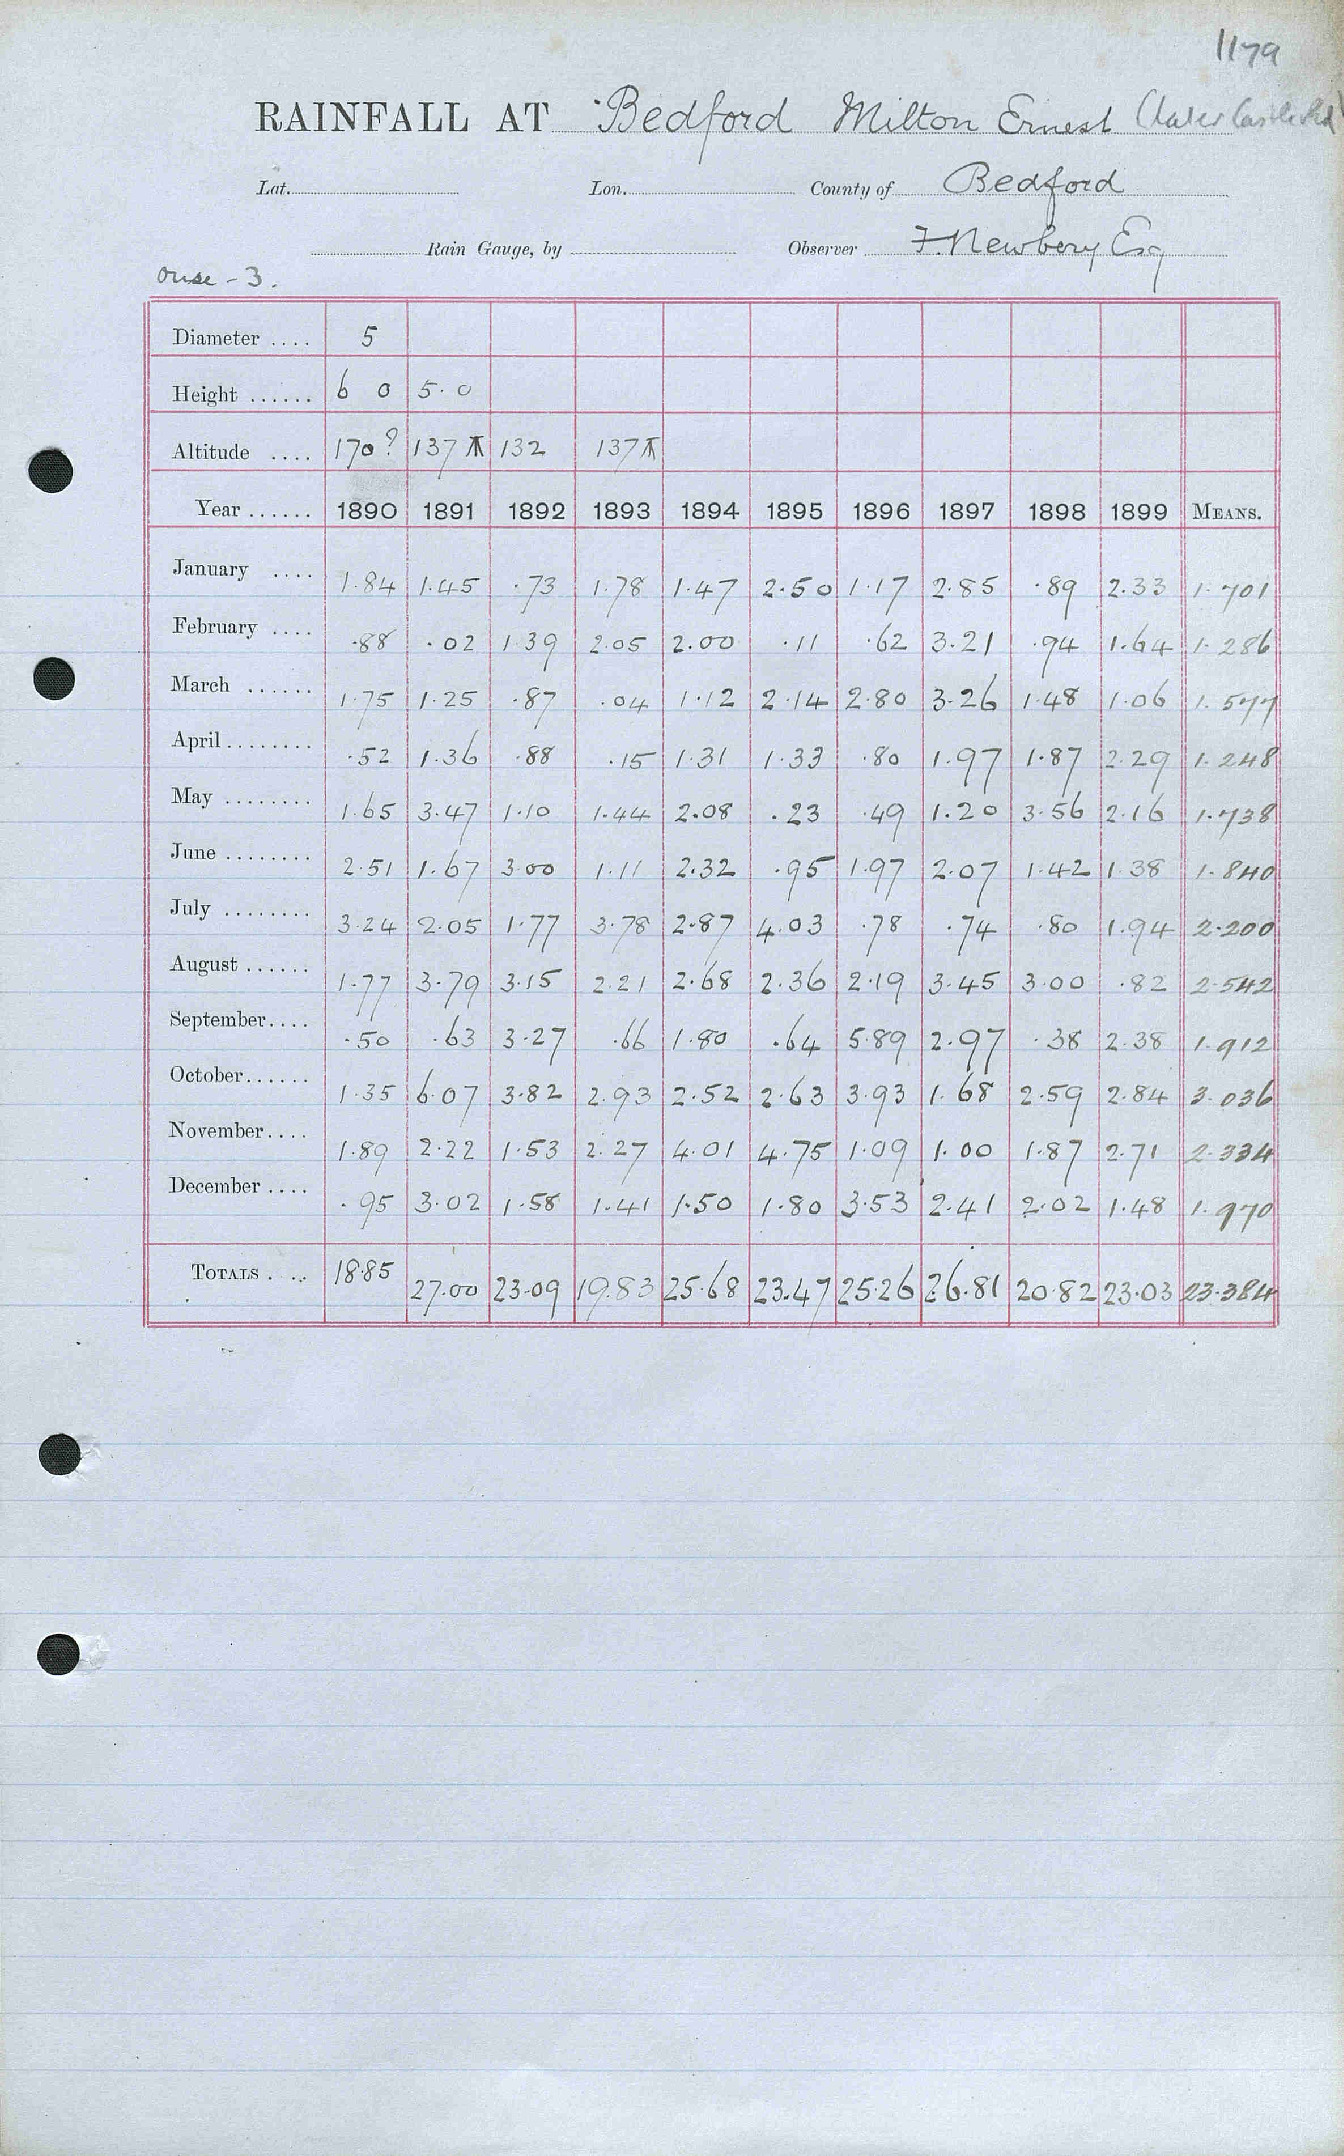 1179
RAINFALL AT Bedford Milton Ernest (later Castle Rd)
Lat. Lon. County of Bedford
Rain Gauge, by Observer F. Newbery Esq
Ouse - 3.
Diameter .... 5
Height ...... 6 0 5.0
Altitude .... 170? 137 132 137
Year ...... 1890 1891 1892 1893 1894 1895 1896 1897 1898 1899 MEANS.
January .... 1.84 1.45 .73 1.78 1.47 2.50 1.17 2.85 .89 2.33 1.701
February .... .88 .02 1.39 2.05 2.00 .11 .62 3.21 .94 1.64 1.286
March ...... 1.75 1.25 .87 .04 1.12 2.14 2.80 3.26 1.48 1.06 1.577
April ........ .52 1.36 .88 .15 1.31 1.33 .80 1.97 1.87 2.29 1.248
May ........ 1.65 3.47 1.10 1.44 2.08 .23 .49 1.20 3.56 2.16 1.738
June ........ 2.51 1.67 3.00 1.11 2.32 .95 1.97 2.07 1.42 1.38 1.840
July ........ 3.24 2.05 1.77 3.78 2.87 4.03 .78 .74 .80 1.94 2.200
August ...... 1.77 3.79 3.15 2.21 2.68 2.36 2.19 3.45 3.00 .82 2.542
September.... .50 .63 3.27 .66 1.80 .64 5.89 2.97 .38 2.38 1.912
October...... 1.35 6.07 3.82 2.93 2.52 2.63 3.93 1.68 2.59 2.84 3.036
November.... 1.89 2.22 1.53 2.27 4.01 4.75 1.09 1.00 1.87 2.71 2.334
December .... .95 3.02 1.58 1.41 1.50 1.80 3.53 2.41 2.02 1.48 1.970
TOTALS . ... 18.85 27.00 23.09 19.83 25.68 23.47 25.26 26.81 20.82 23.03 23.384